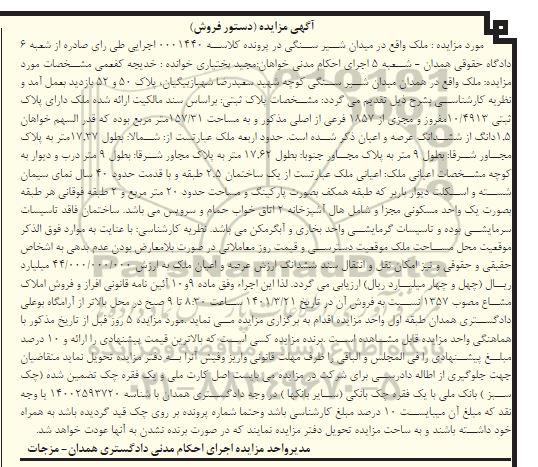 آگهی مزایده (دستور فروش)
مورد مزایده : ملک واقع در میدان شیر سنگی در پرونده کلاسه ۰۰۰۱۴۴۰ اجرایی طی رای صادره از شعبه ۶
دادگاه حقوقی همدان - شعبه ۵ اجرای احکام مدنی خواهان:مجید بختیاری خوانده : خدیجه کفعمی مشخصات مورد
مزایده: ملک واقع در همدان میدان شیر سنگی کوچه شهید سعیدرضا شهبازبیگیان، پلاک ۵۰ و ۵۲ بازدید بعمل آمد و
نظریه کارشناسی بشرح ذیل تقدیم می گردد: مشخصات پلاک ثبتی: براساس سند مالکیت ارائه شده ملک دارای پلاک
ثبتی ۱۰/۴۹۱۳مفروز و مجزی از ۱۸۵۷ فرعی از اصلی مذکور و به مساحت ۱۵۷/۳۱متر مربع بوده که قدر السهم خواهان
۱.۵دانگ از ششدانگ عرصه و اعیان ذکر شده است. حدود اربعه ملک عبارتست از: شمالا: بطول ۱۷.۳۷متر به پلاک
مجاور شرقا: بطول ۹ متر به پلاک مجاور جنوبا: بطول ۱۷.۶۲ متر به پلاک مجاور شرقا: بطول ۹ متر درب و دیوار به
کوچه مشخصات اعیانی ملک: اعیانی ملک عبارتست از یک ساختمان ۲.۵ طبقه و با قدمت حدود ۴۰ سال نمای سیمان
شسته و اسکلت دیوار باربر که طبقه همکف بصورت پارکینگ و مساحت حدود ۲۰ متر مربع و ۲ طبقه فوقانی هر طبقه
بصورت یک واحد مسکونی مجزا و شامل هال آشپزخانه ۲ اتاق خواب حمام و سرویس می باشد. ساختمان فاقد تاسیسات
سرمایشی بوده و تاسیسات گرمایشی واحد بخاری و آبگرمکن می باشد. نظریه کارشناسی: با عنایت به موارد فوق الذکر
موقعیت محل مساحت ملک موقعیت دسترسی و قیمت روز معاملاتی در صورت بلامعارض بودن عدم بدهی به اشخاص
حقیقی و حقوقی و نیز امکان نقل و انتقال سند ششدانگ ارزش عرصه و اعیان ملک به ارزش ۴۴/۰۰۰/۰۰۰/۰۰۰ میلیارد
ریال (چهل و چهار میلیارد ریال) ارزیابی می گردد. لذا این اجراء وفق ماده ۹و۱۰ آئین نامه قانونی افراز و فروش املاک
مشاع مصوب ۱۳۵۷ نسبت به فروش آن در تاریخ ۱۴۰۱/۳/۲۱ ساعت ۸:۳۰ تا ۹ صبح در محل بالاتر از آرامگاه بوعلی
دادگستری همدان طبقه اول واحد مزایده اقدام به برگزاری مزایده می نماید .مورد مزایده ۵ روز قبل از تاریخ مذکور با
هماهنگی واحد مزایده قابل مشاهده است. برنده مزایده کسی است که بالاترین قیمت پیشنهادی را ارائه و ۱۰ درصد
مبلغ پیشنهادی را فی المجلس و الباقی را ظرف مهلت قانونی واریز وفیش آنرا به دفتر مزایده تحویل نماید متقاضیان
جهت جلوگیری از اطاله دادرسی برای شرکت در مزایده می بایست اصل کارت ملی و یک فقره چک تضمین شده (چک
سبز ) بانک ملی با یک فقره چک بانکی (سایر بانکها ) در وجه دادگستری همدان با شناسه ۱۴۰۰۲۵۹۳۷۲۰ یا وجه
نقد که مبلغ آن میبایست ۱۰ درصد مبلغ کارشناسی باشد وحتما شماره پرونده بر روی چک قید گردیده باشد به همراه
خود داشته باشند و به ساحت مزایده تحویل دفتر مزایده نمایند که در صورت برنده نشدن به آنها عودت خواهد شد.
مدیرواحد مزایده اجرای احکام مدنی دادگستری همدان- مزجات
۰۲۱-۸۸۳۴۹۶۷۰-۵